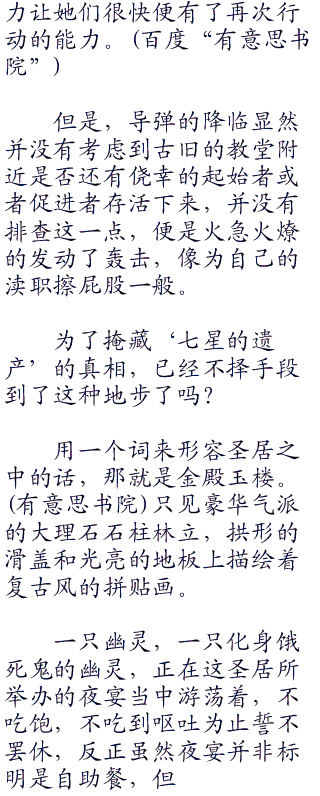 力让她们很快便有了再次行
动的能力。(百度“有意思书
院”)
但是，导弹的降临显然
并没有考虑到古旧的教堂附
近是否还有侥幸的起始者或
者促进者存活下来，并没有
排查这一点，便是火急火燎
的发动了轰击，像为自己的
渎职擦屁股一般。
为了掩藏‘七星的遗
产’的真相，已经不择手段
到了这种地步了吗？
用一个词来形容圣居之
中的话，那就是金殿玉楼。
(有意思书院)只见豪华气派
的大理石石柱林立，拱形的
滑盖和光亮的地板上描绘着
复古风的拼贴画。
一只幽灵，一只化身饿
死鬼的幽灵，正在这圣居所
举办的夜宴当中游荡着，不
吃饱，不吃到呕吐为止誓不
罢休，反正虽然夜宴并非标
明是自助餐，但